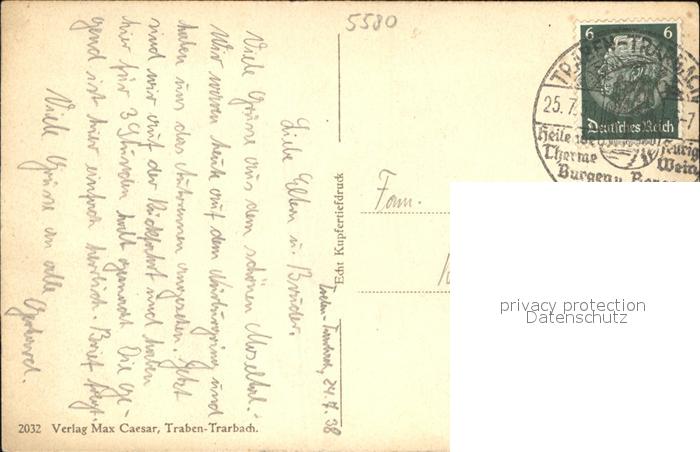 5580
6 6
TRABEN-TRARBACH
25.7.
-7
Deutsches Reich
Heile
feurig
Therme
Wein
Burgen u.
Traben-Trarbach, 24.7.38
Liebe Eltern u. Bruder,
Viele Grüsse aus dem schönen Moseltal.
Wir waren heute auf dem Nürburgring und
haben uns das Autorennen angesehen. Jetzt
sind wir auf der Rückfahrt und haben
hier für 3 Stunden halt gemacht. Die Ge-
gend ist hier einfach herrlich. Brief folgt.
Viele Grüsse an alle
Gerhard.
Echt Kupfertiefdruck
Fam.
privacy protection
Datenschutz
2032 Verlag Max Caesar, Traben-Trarbach.